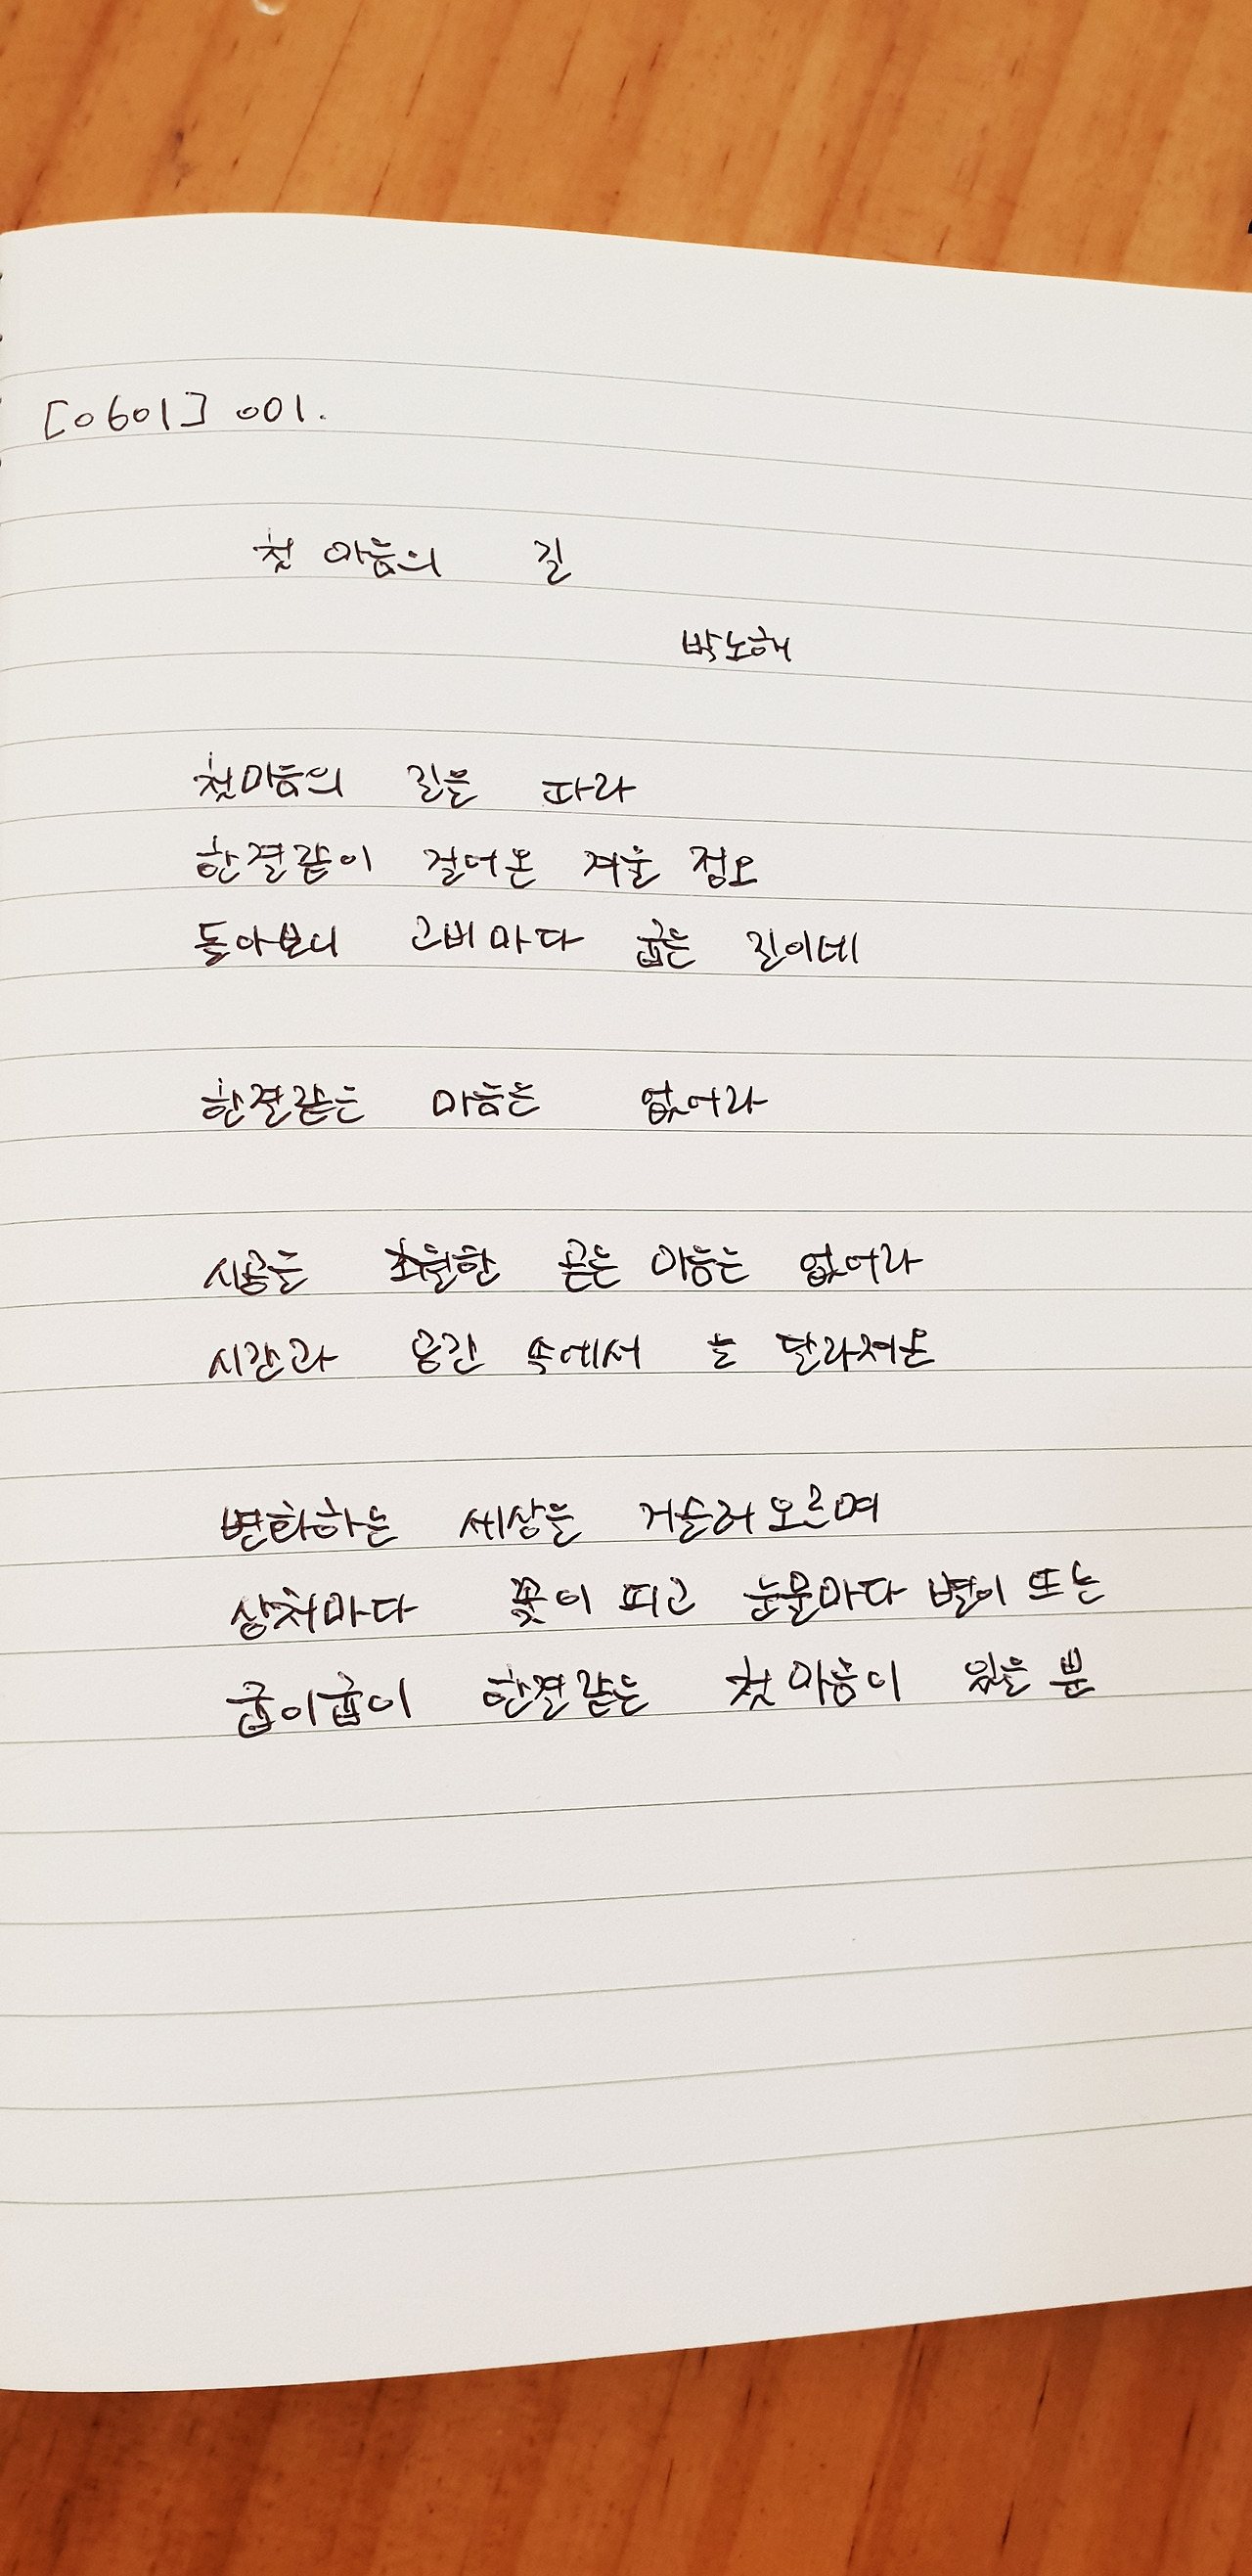 [0601] 001.
첫 마음의 길
박노해
첫마음의 길을 따라
한결같이 걸어온 겨울 정오
돌아보니 고비마다 굽은 길이네
한결같은 마음은 없어라
시공을 초월한 곧은 마음은 없어라
시간과 공간 속에서 늘 달라져온
변화하는 세상을 거슬러오르며
상처마다 꽃이 피고 눈물마다 별이 뜨는
굽이굽이 한결같은 첫 마음이 있을 뿐